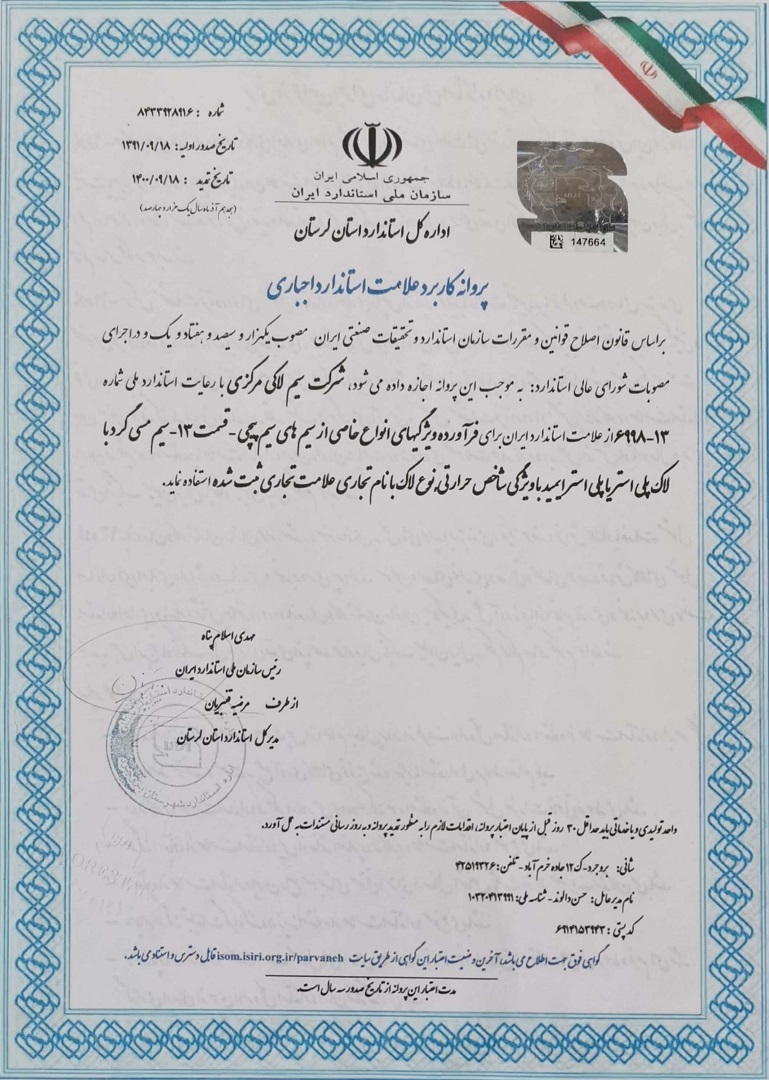 شماره : ۸۴۳۳۹۲۸۹۱۶
تاریخ صدور اولیه: ۱۳۹۱/۰۹/۱۸
تاریخ تمدید : ۱۴۰۰/۰۹/۱۸
(هجدهم آذر ماه سال یک هزار و چهارصد)
جمهوری اسلامی ایران
سازمان ملی استاندارد ایران
147664
اداره کل استاندارد استان لرستان
پروانه کاربرد علامت استاندارد اجباری
براساس قانون اصلاح قوانین و مقررات سازمان استاندارد و تحقیقات صنعتی ایران مصوب یکهزار و سیصد و هفتاد و یک و در اجرای
مصوبات شورای عالی استاندارد: به موجب این پروانه اجازه داده می شود، شرکت سیم لاکی مرکزی با رعایت استاندارد ملی شماره
۱۳-۶۹۹۸ از علامت استاندارد ایران برای فرآورده ویژگیهای انواع خاصی از سیم های سیم پیچی - قسمت ۱۳- سیم مسی گرد با
لاک پلی استر یا پلی استر ایمید با ویژگی شاخص حرارتی، نوع لاک با نام تجاری علامت تجاری ثبت شده استفاده نماید.
مهدی اسلام پناه
رئیس سازمان ملی استاندارد ایران
از طرف مرضیه قنبریان
مدیر کل استاندارد استان لرستان
واحد تولیدی و یا خدماتی باید حداقل ۳۰ روز قبل از پایان اعتبار پروانه، اقدامات لازم را به منظور تمدید پروانه و به روز رسانی مستندات به عمل آورد.
نشانی: بروجرد-ک ۱۲ جاده خرم آباد - تلفن: ۴۲۵۱۹۳۲۶
نام مدیرعامل: حسن دالوند - شناسه ملی: ۱۰۳۲۰۴۱۳۹۹۱
کد پستی: ۶۹۱۴۱۵۳۹۴۳
گواهی فوق جهت اطلاع می باشد، آخرین وضعیت اعتبار این گواهی از طریق سایت isom.isiri.org.ir/parvaneh قابل دسترس و استناد می باشد.
مدت اعتبار این پروانه از تاریخ صدور سه سال است.